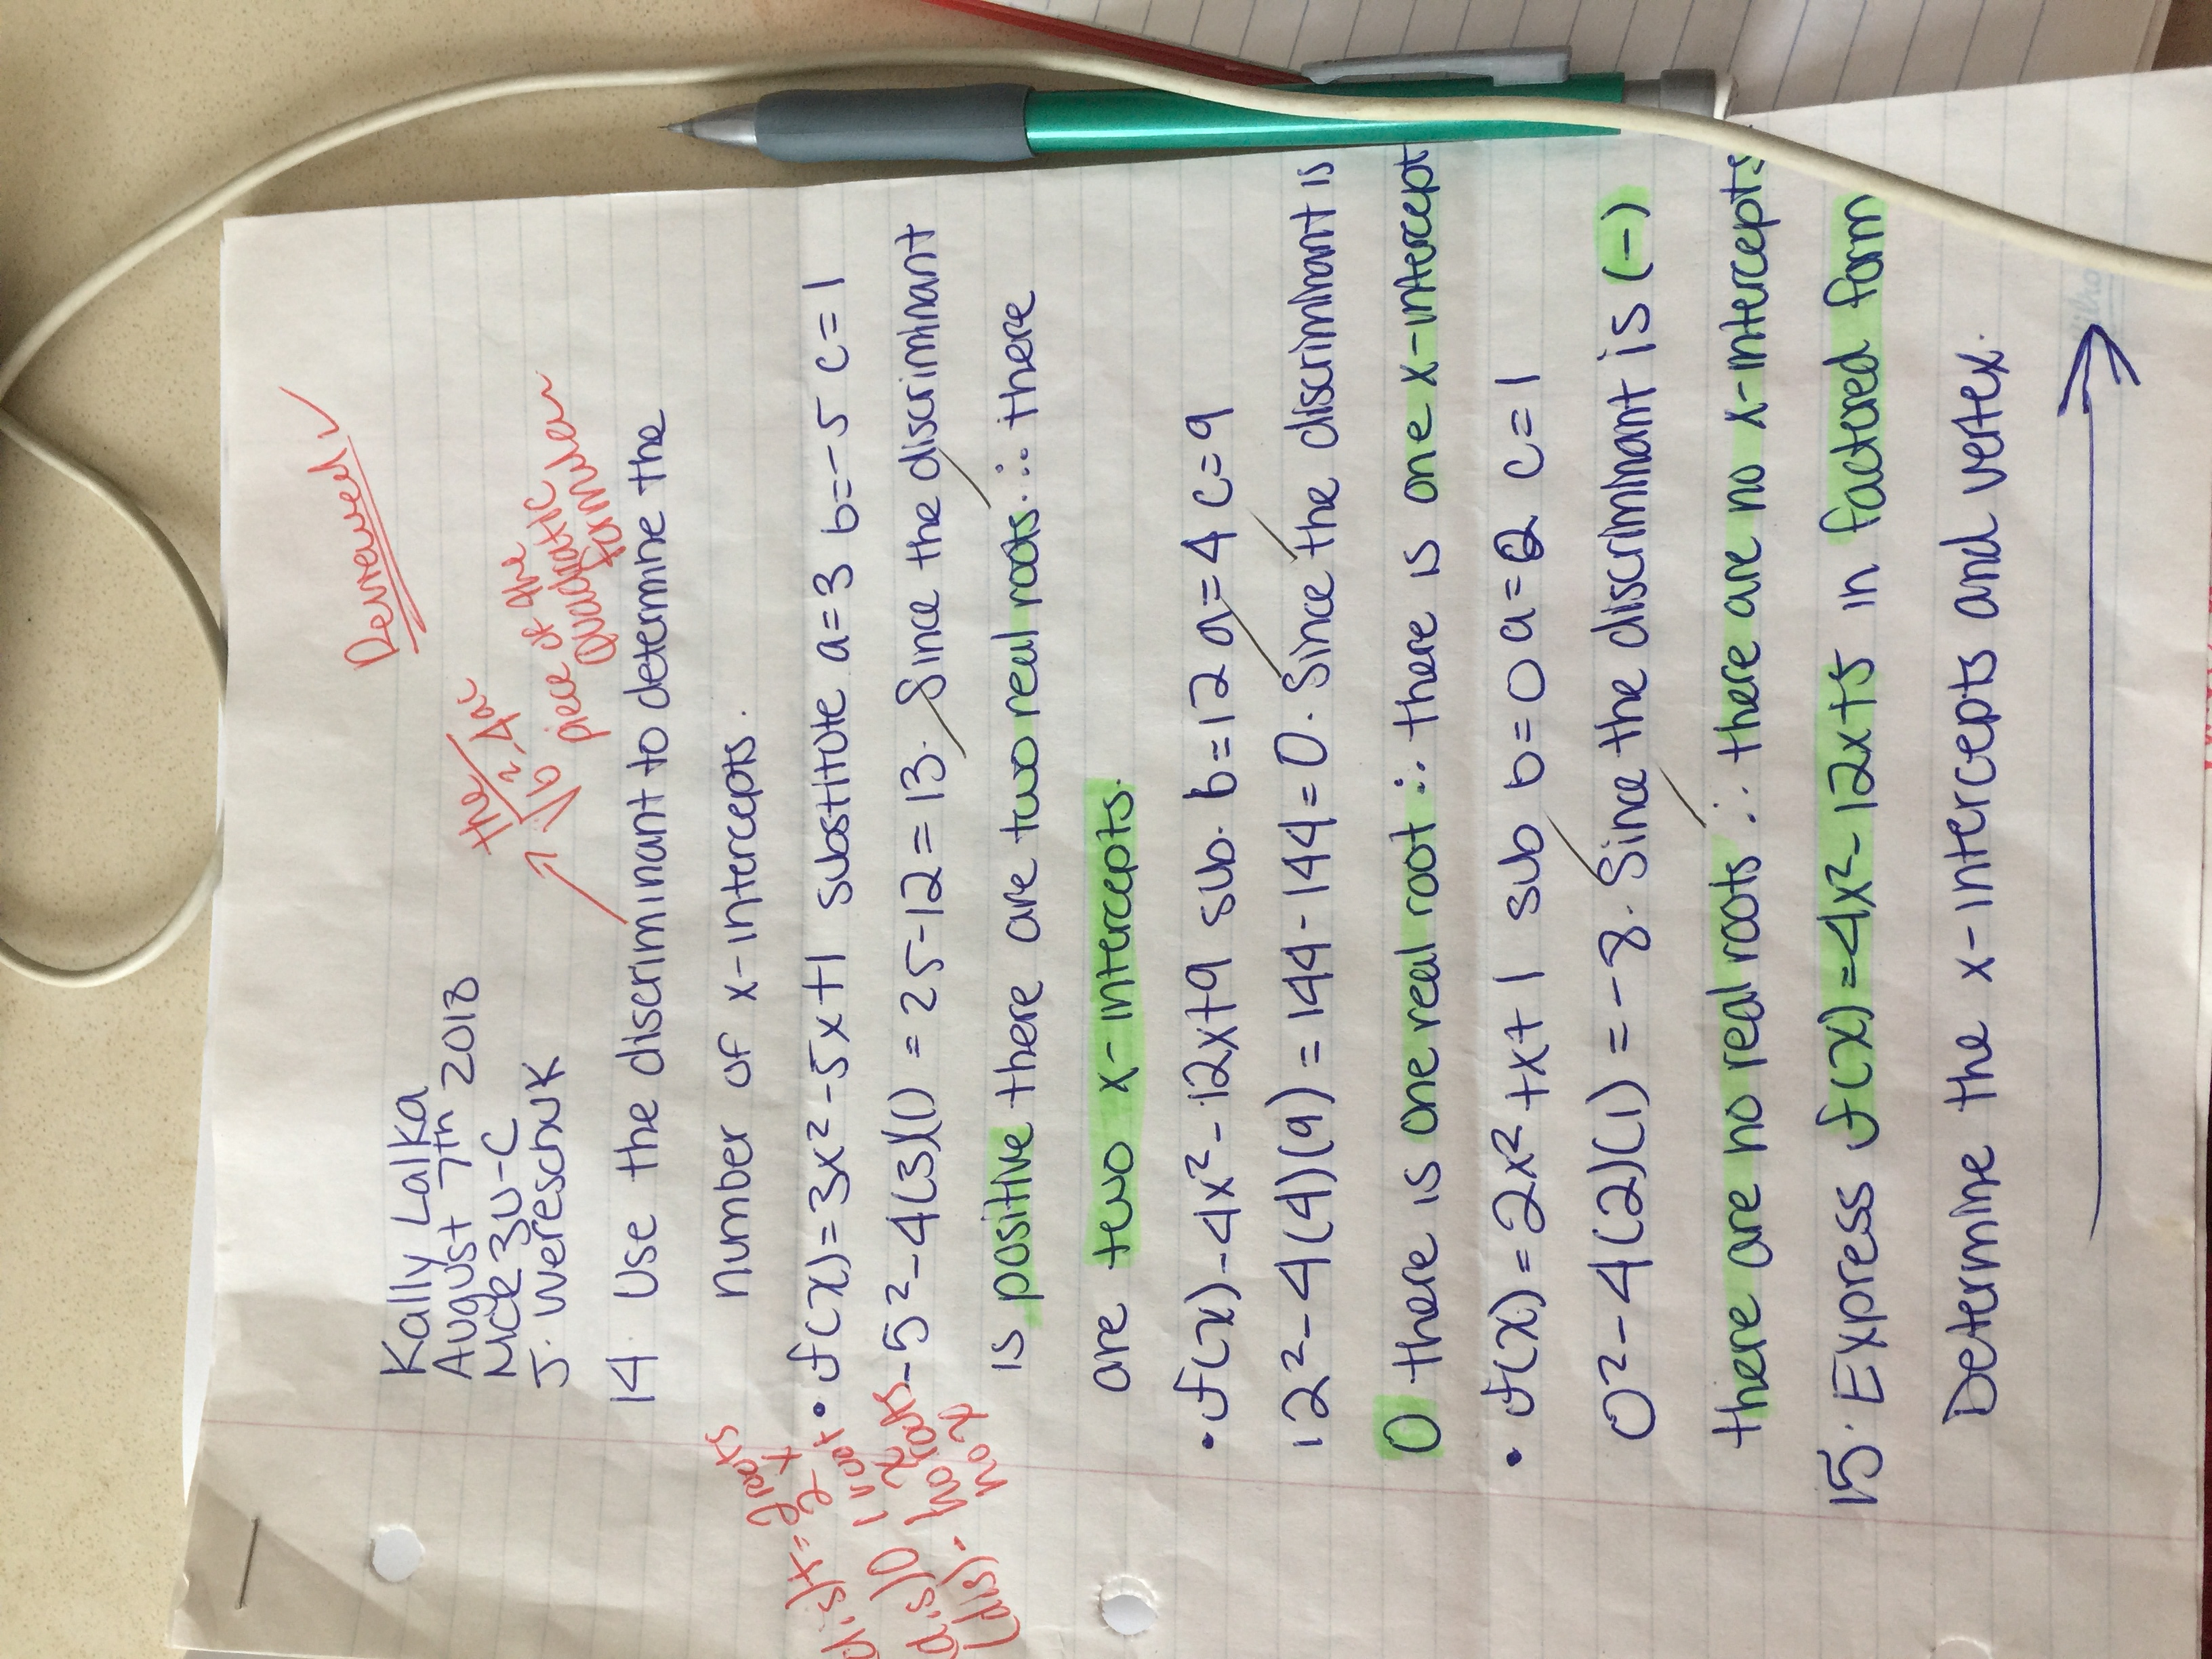 Reviewed ✓
Kally Lalka
August 7th 2018
MCR 3U-C
J. Wereschuk
the
√b²-4ac
piece of the
quadratic
formula
14. Use the discriminant to determine the
number of x-intercepts.
• f(x)=3x²-5x+1 substitute a=3 b=-5 c=1
-5²-4(3)(1) = 25-12=13. Since the discriminant
is positive there are two real roots ∴ there
are two x-intercepts.
• f(x)-4x²-12x+9 sub. b=12 a=4 c=9
12²-4(4)(9)=144-144=0. Since the discriminant is
0 there is one real root ∴ there is one x-intercept
• f(x)=2x²+x+1 sub b=0 a=2 c=1
0²-4(2)(1)=-8. Since the discriminant is (-)
there are no real roots ∴ there are no x-intercepts
15. Express f(x)=4x²-12x+5 in factored form
Determine the x-intercepts and vertex.
(dis)+=2 roots
2 x
(dis)0 1 root
1 x
(dis)- no roots
no x